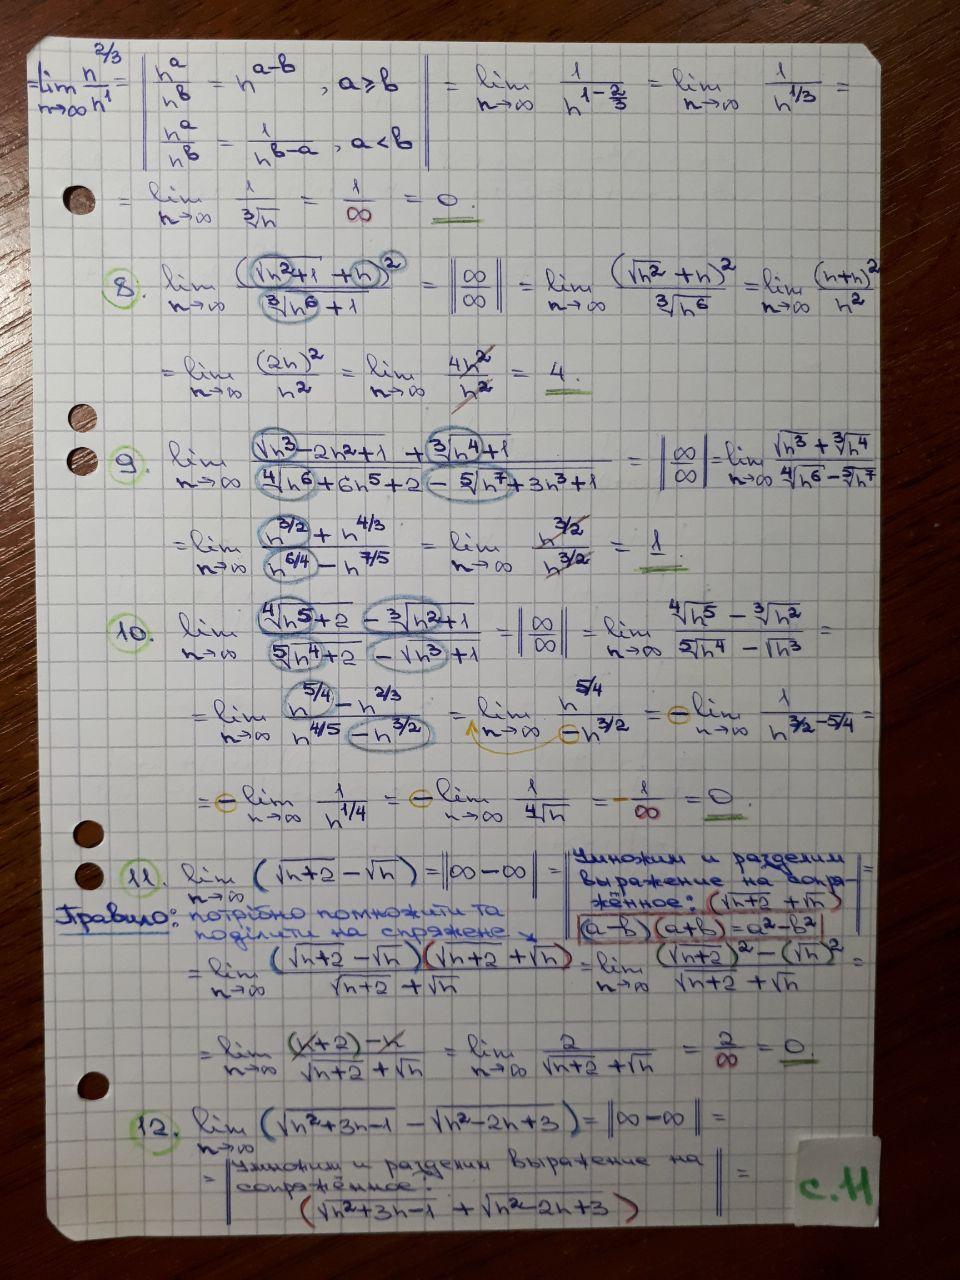 = lim n→∞ n^(2/3)/n^1 = ‖ n^a/n^b = n^(a-b), a ≥ b ; n^a/n^b = 1/n^(b-a), a < b ‖ = lim n→∞ 1/n^(1-2/3) = lim n→∞ 1/n^(1/3) =
= lim n→∞ 1/∛n = 1/∞ = 0.
8. lim n→∞ (√(n²+1) + n)²/∛(n⁶+1) = ‖∞/∞‖ = lim n→∞ (√n² + n)²/∛n⁶ = lim n→∞ (n+n)²/n²
= lim n→∞ (2n)²/n² = lim n→∞ 4n²/n² = 4.
9. lim n→∞ (√(n³-2n²+1) + ∛(n⁴+1))/(⁴√(n⁶+6n⁵+2) - ⁵√(n⁷+3n³+1)) = ‖∞/∞‖ = lim n→∞ (√n³ + ∛n⁴)/(⁴√n⁶ - ⁵√n⁷)
= lim n→∞ (n^(3/2) + n^(4/3))/(n^(6/4) - n^(7/5)) = lim n→∞ n^(3/2)/n^(3/2) = 1.
10. lim n→∞ (⁴√(n⁵+2) - ∛(n²+1))/(⁵√(n⁴+2) - √(n³+1)) = ‖∞/∞‖ = lim n→∞ (⁴√n⁵ - ∛n²)/(⁵√n⁴ - √n³) =
= lim n→∞ (n^(5/4) - n^(2/3))/(n^(4/5) - n^(3/2)) = lim n→∞ n^(5/4)/(-n^(3/2)) = - lim n→∞ 1/n^(3/2-5/4) =
= - lim n→∞ 1/n^(1/4) = - lim n→∞ 1/⁴√n = - 1/∞ = 0.
11. lim n→∞ (√(n+2) - √n) = ‖∞-∞‖ = ‖ Умножим и разделим
выражение на сопря-
жённое: (√(n+2) + √n)
(a-b)(a+b) = a²-b² ‖ =
Правило: потрібно помножити та
поділити на спряжене
= lim n→∞ (√(n+2) - √n)(√(n+2) + √n)/(√(n+2) + √n) = lim n→∞ ((√(n+2))² - (√n)²)/(√(n+2) + √n) =
= lim n→∞ ((n+2)-n)/(√(n+2) + √n) = lim n→∞ 2/(√(n+2) + √n) = 2/∞ = 0.
12. lim n→∞ (√(n²+3n-1) - √(n²-2n+3)) = ‖∞-∞‖ =
= ‖ Умножим и разделим выражение на
сопряжённое:
(√(n²+3n-1) + √(n²-2n+3)) ‖ =
с.11